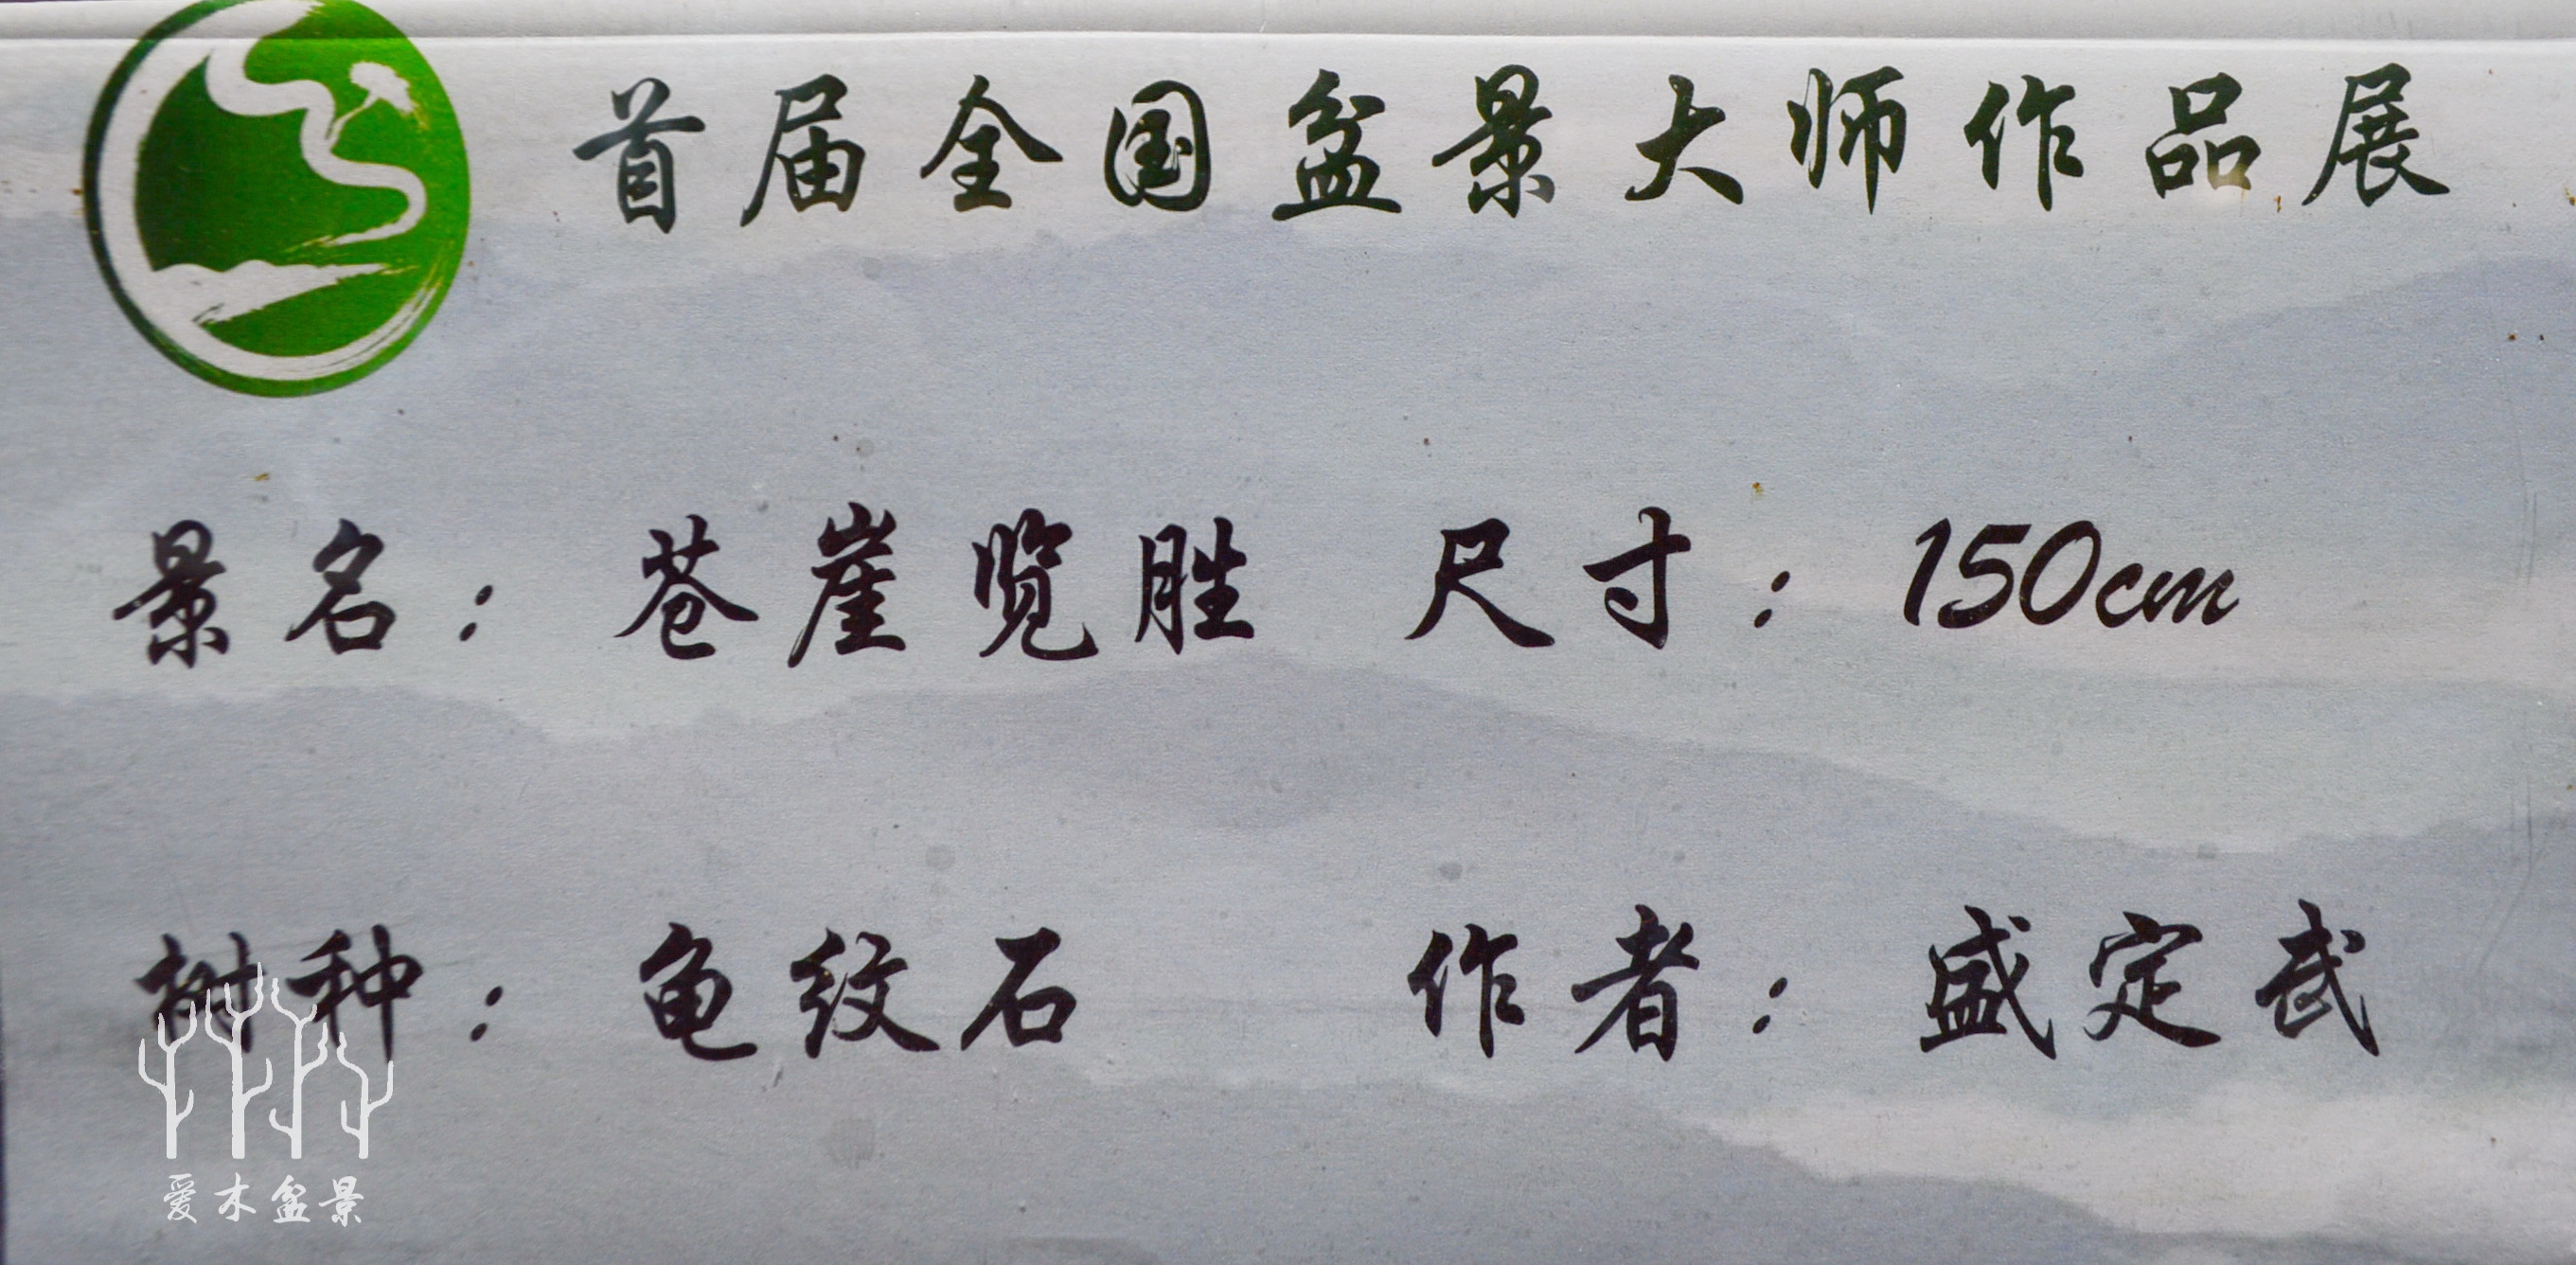 首届全国盆景大师作品展
景名：苍崖览胜 尺寸：150cm
树种：龟纹石 作者：盛定武
爱木盆景